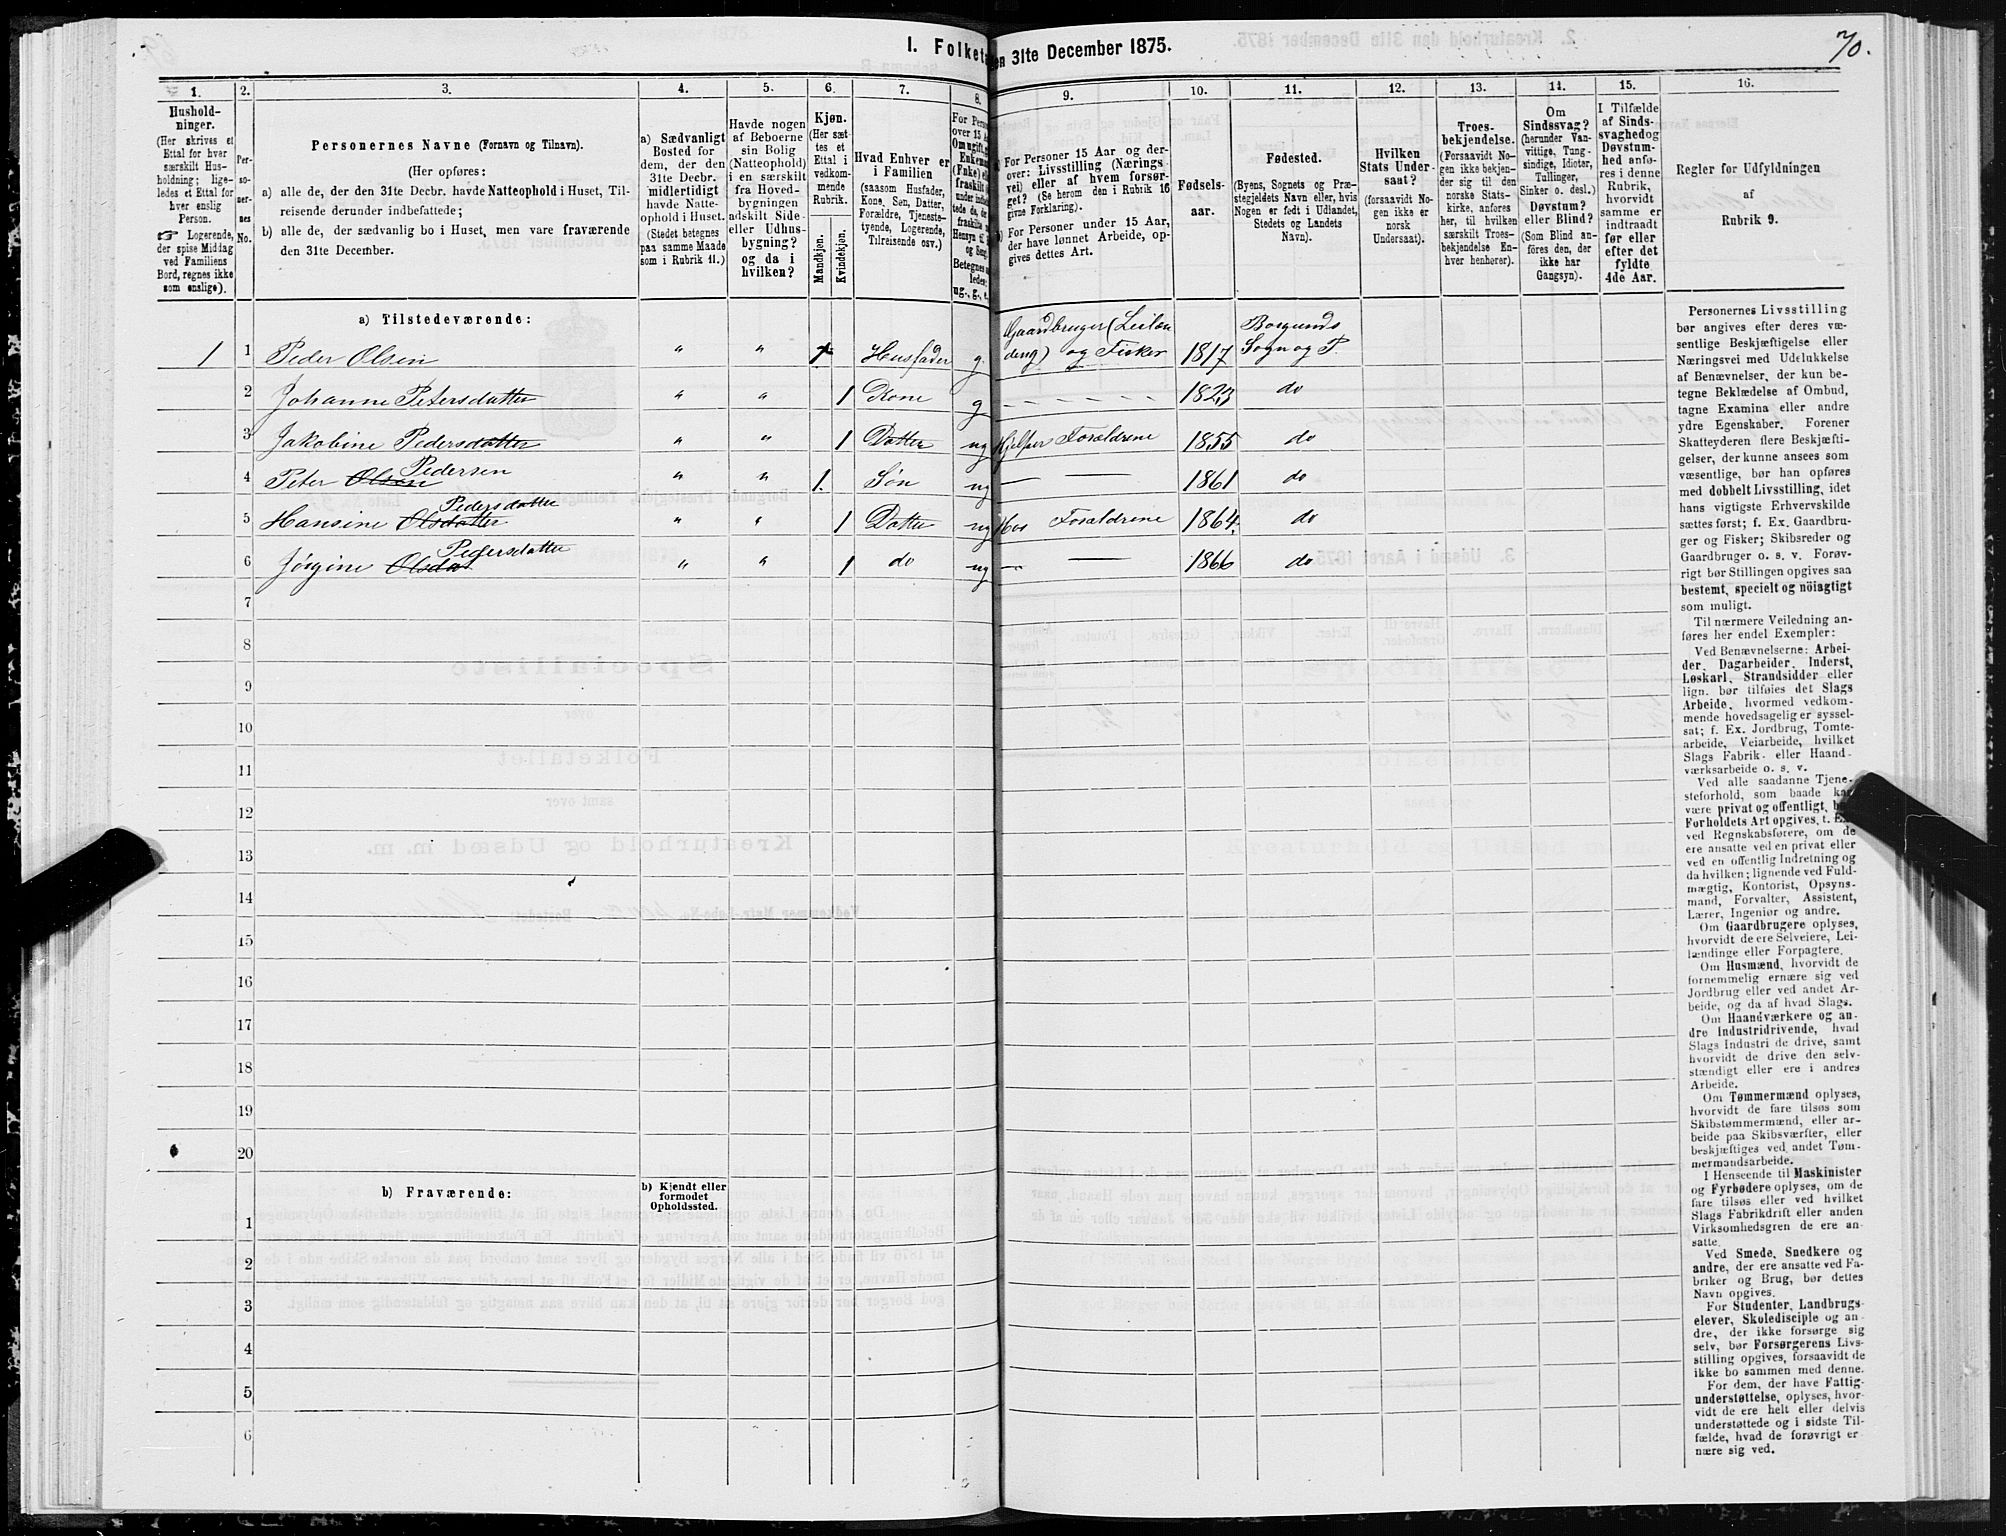 70.
I. Folketa
en 31te December 1875.
1. 2. 3. 4. 5. 6. 7. 8. 9. 10. 11. 12. 13. 14. 15. 16.
Hushold-
ninger.
(Her skrives et
Ettal for hver
særskilt Hus-
holdning; lige-
ledes et Ettal for
hver enslig
Person.
☞ Logerende,
der spise Middag
ved Familiens
Bord, regnes ikke
som enslige).
Per-
so-
ner-
nes
No.
Personernes Navne (Fornavn og Tilnavn).
(Her opføres:
a) alle de, der den 31te Decbr. havde Natteophold i Huset, Til-
reisende derunder indbefattede;
b) alle de, der sædvanlig bo i Huset, men vare fraværende
den 31te December.
a) Sædvanligt
Bosted for
dem, der den
31te Decbr.
midlertidigt
havde Natte-
ophold i Huset.
(Stedet betegnes
paa samme Maade
som i Rubrik 11.)
Havde nogen
af Beboerne
sin Bolig
(Natteophold)
i en særskilt
fra Hoved-
bygningen
adskilt Side-
eller Udhus-
bygning?
og da i
hvilken?
Kjøn.
(Her sæt-
tes et
Ettal i
vedkom-
mende
Rubrik.
Mandkjøn.
Kvindekjøn.
Hvad Enhver er
i Familien
(saasom Husfader,
Kone, Søn, Datter,
Forældre, Tjeneste-
tyende, Logerende,
Tilreisende osv.)
For Perso
over 15 Aa
Om ugift, g
Enkem
(Enke) el
fraskilt
Betegnes
ledes:
ug., g., e.,
For Personer 15 Aar og der-
over: Livsstilling (Nærings
vei) eller af hvem forsør-
get? (Se herom den i Rubrik 16
givne Forklaring).
For Personer under 15 Aar,
der have lønnet Arbeide, op-
gives dettes Art.
Fødsels-
aar.
Fødested.
(Byens, Sognets og Præ-
stegjeldets Navn eller, hvis
Nogen er født i Udlandet,
Stedets og Landets
Navn).
Hvilken
Stats Under-
saat?
(forsaavidt No-
gen ikke er
norsk
Undersaat).
Troes-
bekjendelse.
(Forsaavidt No-
gen ikke bekjen-
der sig til den
norske Stats-
kirke, anføres
her, til hvilken
særskilt Troes-
bekjendelse En-
hver henhører).
Om
Sindssvag?
(herunder Van-
vittige, Tung-
sindige, Idioter,
Tullinger,
Sinker o. desl.)
Døvstum?
eller Blind?
(Som Blind an-
føres den, der
ikke har
Gangsyn).
I Tilfælde
af Sinds-
svaghed og
Døvstum-
hed anfø-
res i denne
Rubrik,
hvorvidt
samme er
indtraadt
før eller
efter det
fyldte
4de Aar.
Regler for Udfyldningen
af
Rubrik 9.
a) Tilstedeværende:
1 1 Peder Olsen " " 1 Husfader g. Gaardbruger (Leilæn
ding) og Fisker 1817 Borgunds
Sogn og P.
2 Johanne Petersdatter " " 1 Kone g - - - - - - 1823 do
3 Jakobine Pedersdatter " " 1 Datter ug Hjelper Forældrene 1855 do
4 Peter Olsen Pedersen " " 1. Søn ug — — 1861 do
5 Hansine Olsdatter Pedersdatter " " 1 Datter ug Hos Forældrene 1864. do
6 Jørgine Olsdat Pedersdatter " " 1 do ug — — 1866 do
7
8
9
10
11
12
13
14
15
16
17
18
19
20
b) Fraværende:
b) Kjendt eller
formodet
Opholdssted.
1
2
3
4
5
6
Personernes Livsstilling
bør angives efter deres væ-
sentlige Beskjæftigelse eller
Næringsvei med Udelukkelse
af Benævnelser, der kun be-
tegne Beklædelse af Ombud,
tagne Examina eller andre
ydre Egenskaber. Forener
Skatteyderen flere Beskjæfti-
gelser, der kunne ansees som
væsentlige, bør han opføres
med dobbelt Livsstilling, idet
hans vigtigste Erhvervskilde
sættes først; f. Ex. Gaardbru-
ger og Fisker; Skibsreder og
Gaardbruger o. s. v. Forøv-
rigt bør Stillingen opgives saa
bestemt, specielt og nöiagtigt
som muligt.
Til nærmere Veiledning an-
føres her endel Exempler:
Ved Benævnelserne: Arbei-
der, Dagarbeider, Inderst,
Løskarl, Strandsidder eller
lign. bør tilføies det Slags
Arbeide, hvormed vedkom-
mende hovedsagelig er syssel-
sat; f. Ex. Jordbrug, Tomte-
arbeide, Veiarbeide, hvilket
Slags Fabrik- eller Haand-
værksarbeide o. s. v.
Ved alle saadanne Tjene-
steforhold, som baade kan
være privat og offentligt, bør
Forholdets Art opgives, t. Ex.
ved Regnskabsførere, om de
ere ansatte ved en privat eller
ved en offentlig Indretning og
da hvilken; lignende ved Fuld-
mægtig, Kontorist, Opsyns-
mand, Forvalter, Assistent,
Lærer, Ingeniør og andre.
Om Gaardbrugere oplyses,
hvorvidt de ere Selveiere, Lei-
lændinge eller Forpagtere.
Om Husmænd, hvorvidt de
fornemmelig ernære sig ved
Jordbrug eller ved andet Ar-
beide, og da af hvad Slags.
Om Haandværkere og an-
dre Industridrivende, hvad
Slags Industri de drive, samt
hvorvidt de drive den selv-
stændigt eller ere i andres
Arbeide.
Om Tømmermænd oplyses,
hvorvidt de fare tilsøs som
Skibstømmermænd, eller ar-
beide paa Skibsværfter, eller
beskjæftiges ved andet Tøm-
mermandsarbeide.
I Henseende til Maskinister
og Fyrbødere oplyses, om de
fare tilsøs eller ved hvilket
Slags Fabrikdrift eller anden
Virksomhedsgren de ere an-
satte.
Ved Smede, Snedkere og
andre, der ere ansatte ved Fa-
briker og Brug, bør dettes
Navn opgives.
For Studenter, Landbrugs-
elever, Skoledisciple og an-
dre, der ikke forsørge sig
selv, bør Forsørgerens Livs-
stilling opgives, forsaavidt de
ikke bo sammen med denne.
For dem, der have Fattig-
understøttelse, oplyses, hvor-
vidt de ere helt eller delvis
understøttede og i sidste Til-
fælde, hvad de forøvrigt er-
nære sig ved.